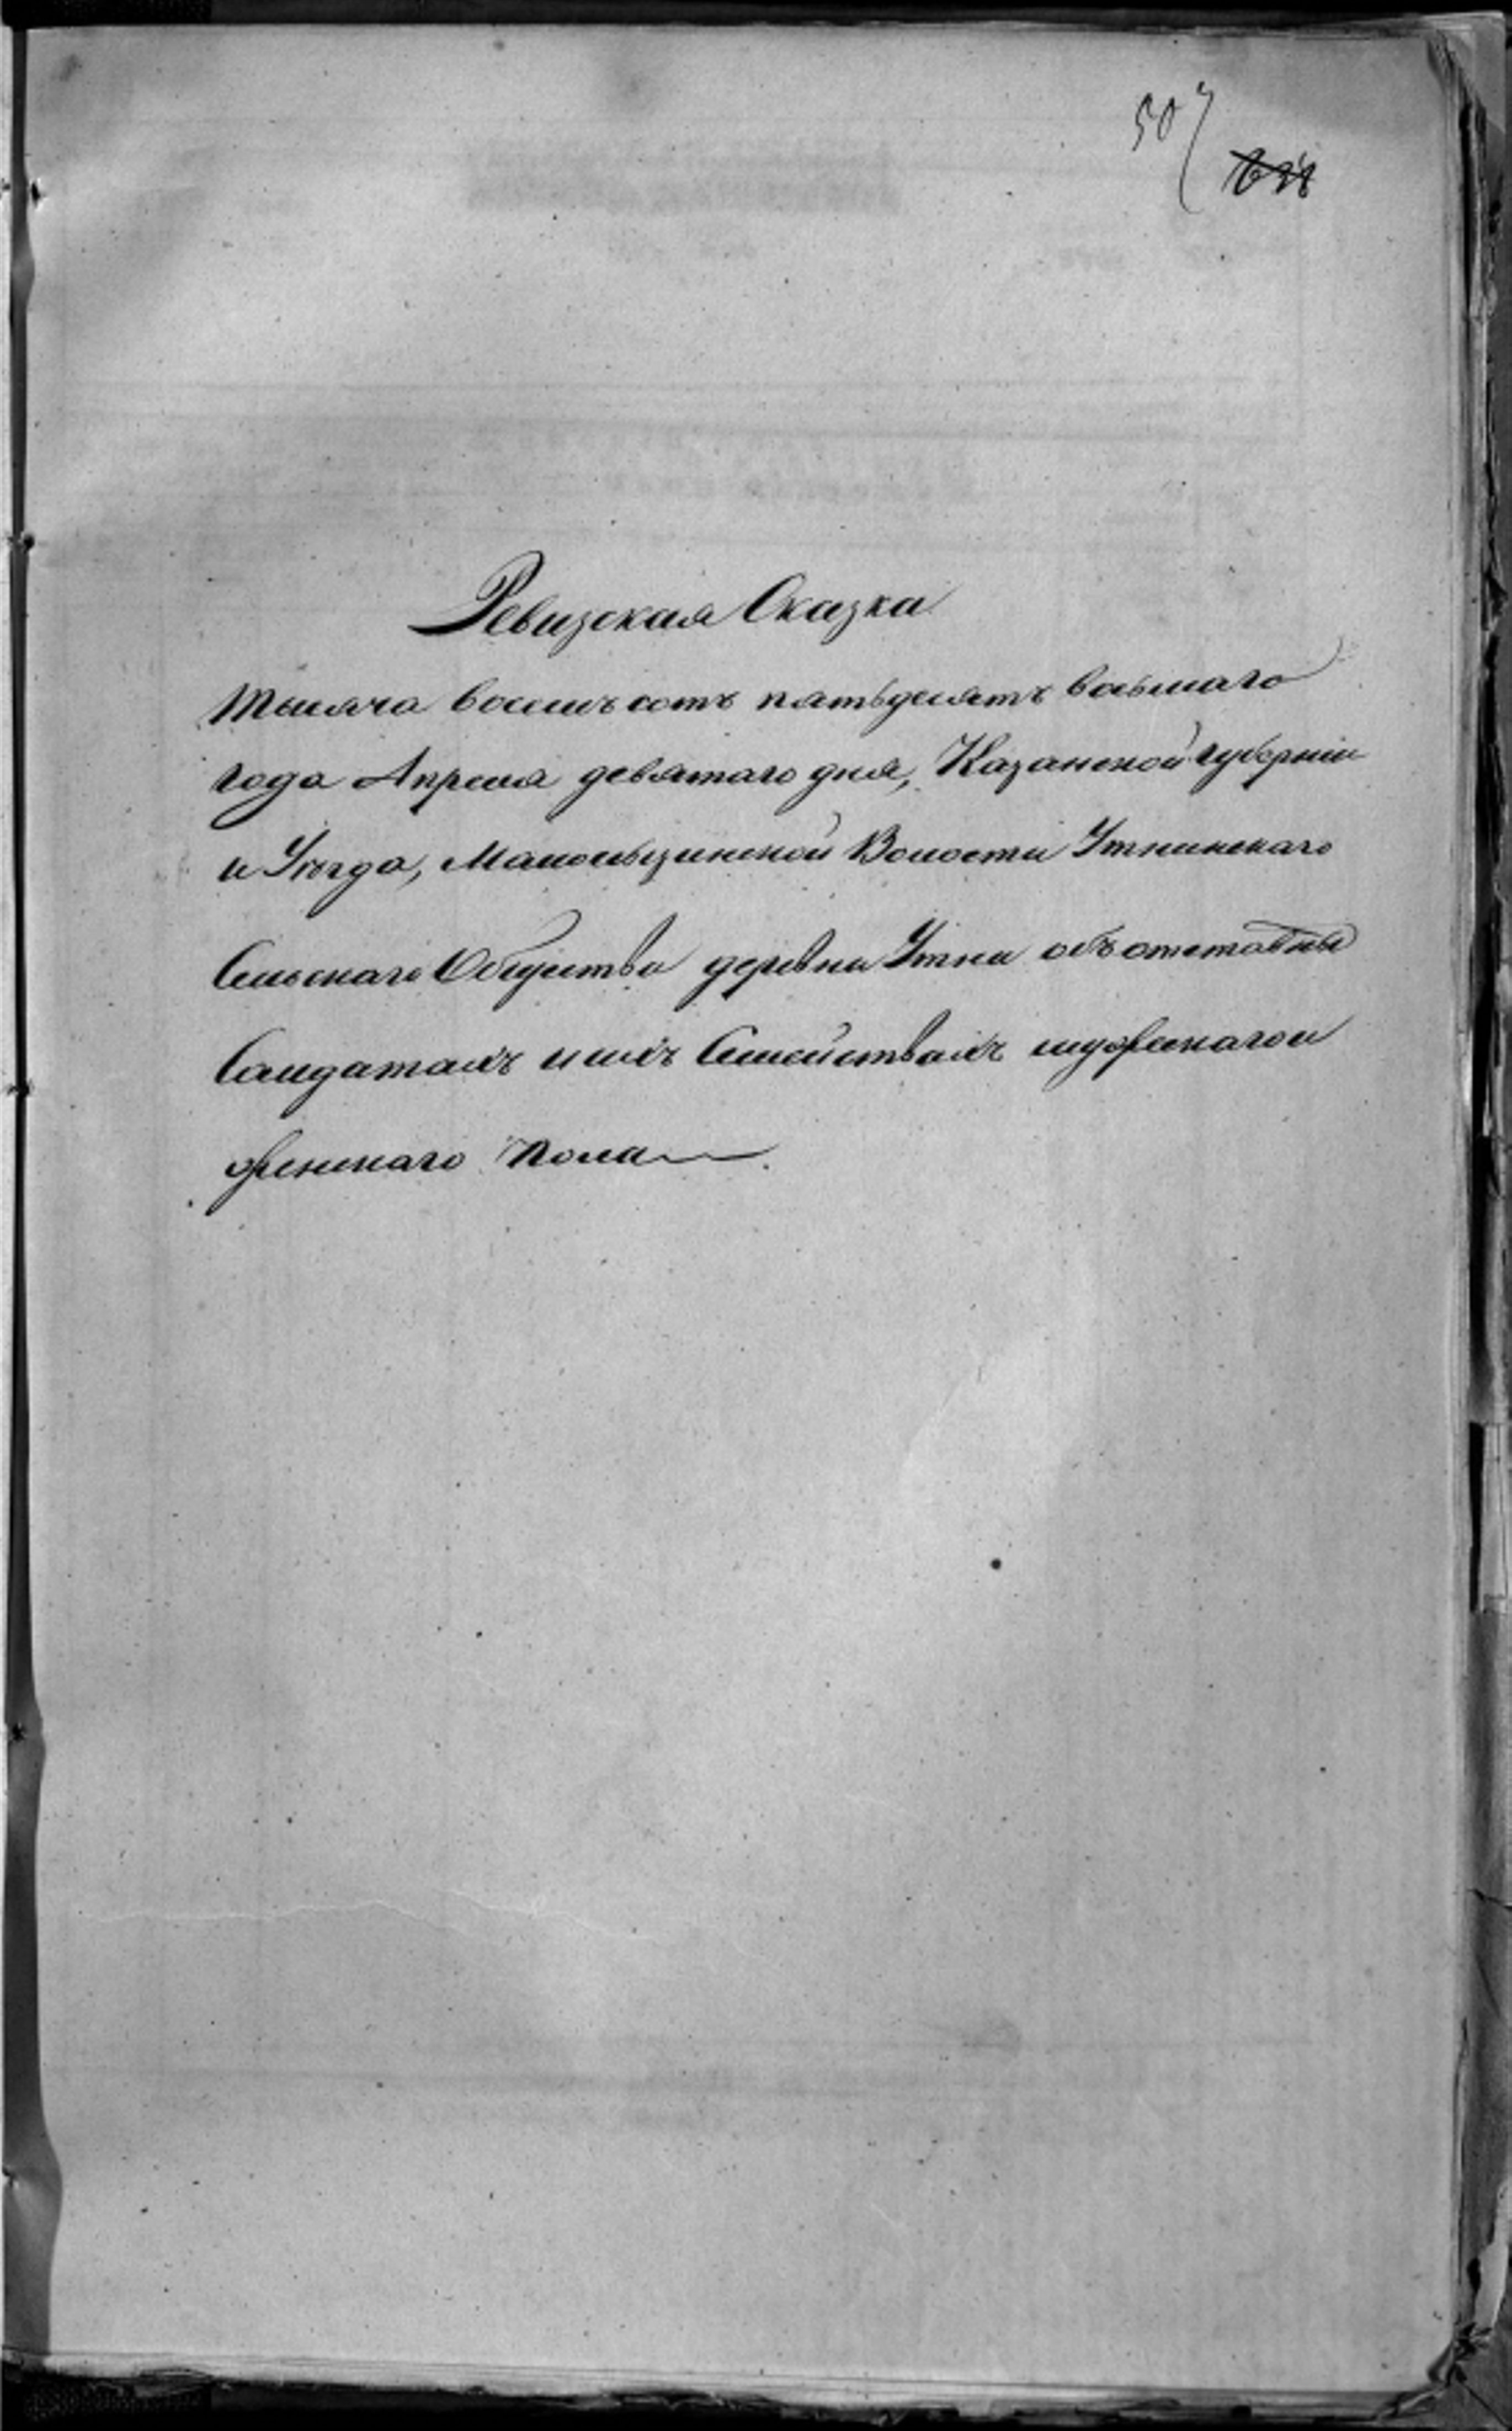 507
Ревизская Сказка
Тысяча восемьсотъ пятьдесятъ восьмаго
года Апреля девятаго дня, Казанской губерніи
и Уѣзда, Мамонинской Волости Утнинскаго
Сельскаго Общества деревни Утни объ отставны
Солдатахъ и ихъ Семействахъ мужескаго и
женскаго пола